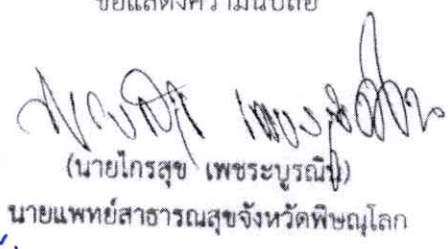 ขอแสดงความนับถือ
(นายไกรสุข เพชระบูรณิน)
นายแพทย์สาธารณสุขจังหวัดพิษณุโลก